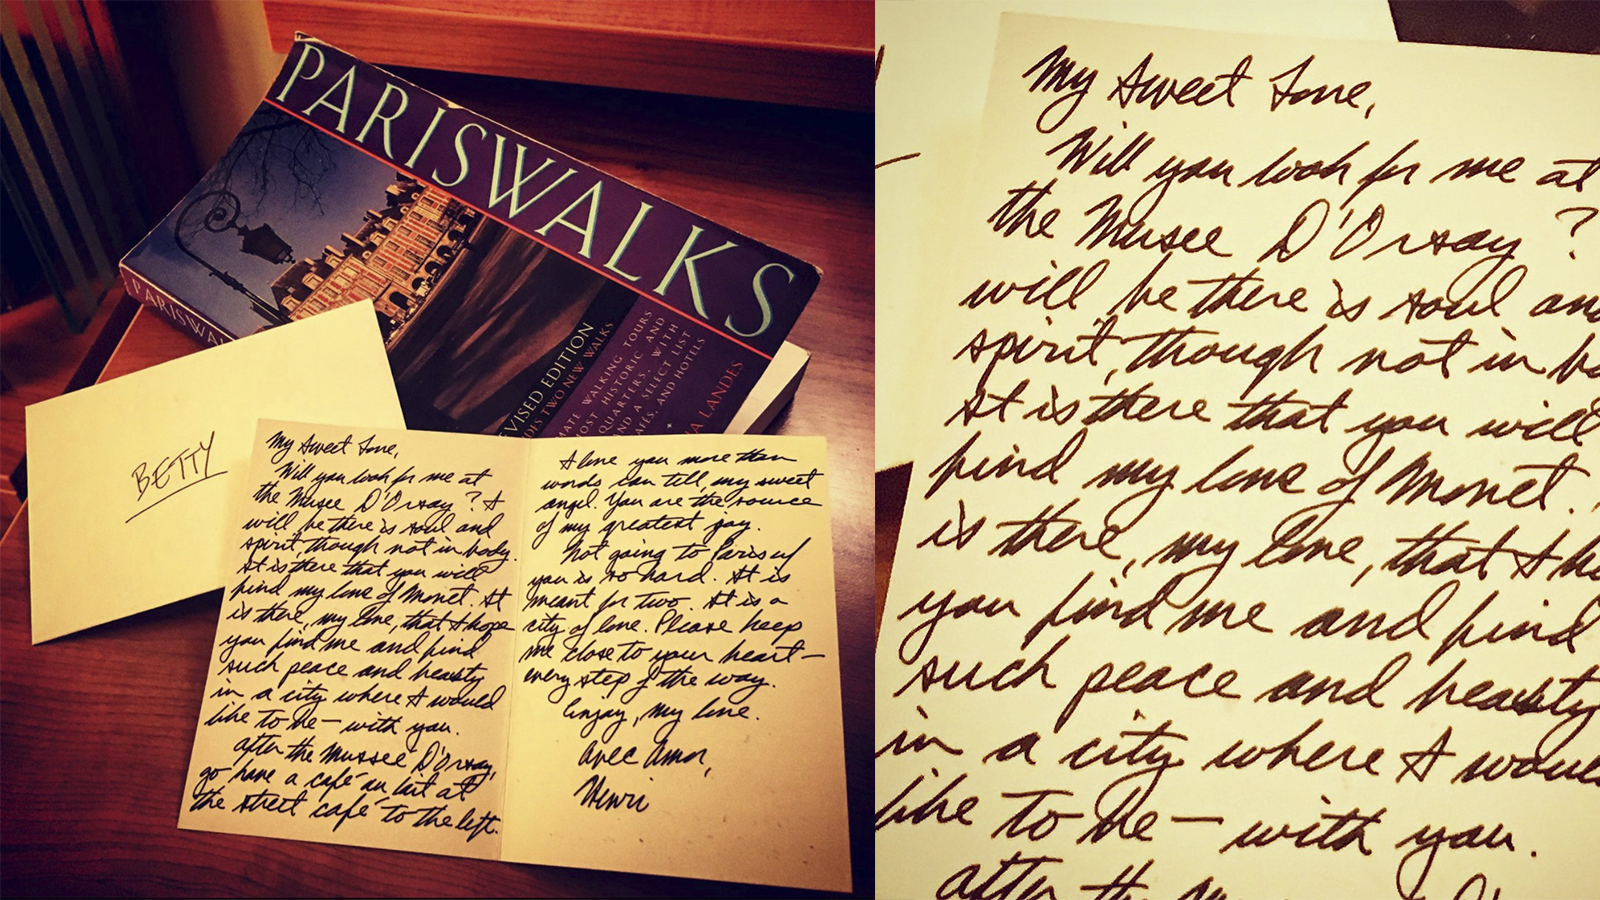 PARISWALKS
PARISWAL
VISED EDITION
DES TWO NEW WALKS
MATE WALKING TOURS
MOST HISTORIC AND
QUARTERS, WITH
AND A SELECT LIST
CAFÉS, AND HOTELS
LANDES
BETTY
My Sweet Love,
Will you look for me at
the Musee D'Orsay? I
will be there is soul and
spirit, though not in body.
It is there that you will
find my love of Monet. It
is there, my love, that I hope
you find me and find
such peace and beauty
in a city where I would
like to be — with you.
After the Mussee D'Orsay,
go have a café au lait at
the street café to the left.
I love you more than
words can tell my sweet
angel. You are the source
of my greatest joy.
Not going to Paris w/
you is so hard. It is
meant for two. It is a
city of love. Please keep
me close to your heart—
every step of the way.
Enjoy, my love.
Avec Amor,
Henri
My Sweet Love,
Will you look for me at
the Musee D'Orsay?
will be there is soul and
spirit, though not in bo
It is there that you will
find my love of Monet.
is there, my love, that I ho
you find me and find
such peace and beauty
in a city where I would
like to be — with you.
After the